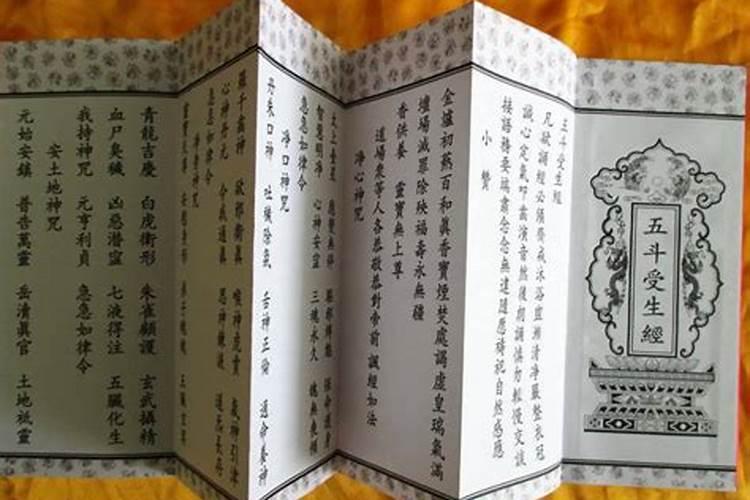 五斗受生經
五斗受生經
凡欲誦經必須齋戒沐浴清淨嚴整衣冠
誠心定氣叩齒演音然後朗誦慎勿輕慢交談
接語務要端肅念念無違隨愿禱祀自然感應
小贊
金爐初爇百和真香寶煙焚處謁虛皇瑞氣滿
壇場滅罪除殃福壽永無疆
香供養 靈寶無上尊
道場眾等人各恭敬恭對帝前 誦經如法
淨心神咒
太上台星 應變無停 驅邪縛魅 保命護身
智慧明淨 心神安寧 三魂永久 魄無喪傾
急急如律令
淨口神咒
丹朱口神 吐穢除氛 舌神正倫 通命養神
羅千齒神 卻邪衛真 喉神虎賁 氣神引津
心神丹元 令我通真 思神鍊液 道炁長存
急急如律令
淨身神咒
靈寶天尊 安慰身形 弟子魂魄 五臟玄冥
青龍吉慶 白虎衛形 朱雀顧護 玄武攝精
血尸臭穢 凶惡潛窪 七液得注 五臟化生
我持神咒 元亨利貞 急急如律令
安土地神咒
元始安鎮 普告萬靈 岳清真官 土地祗靈